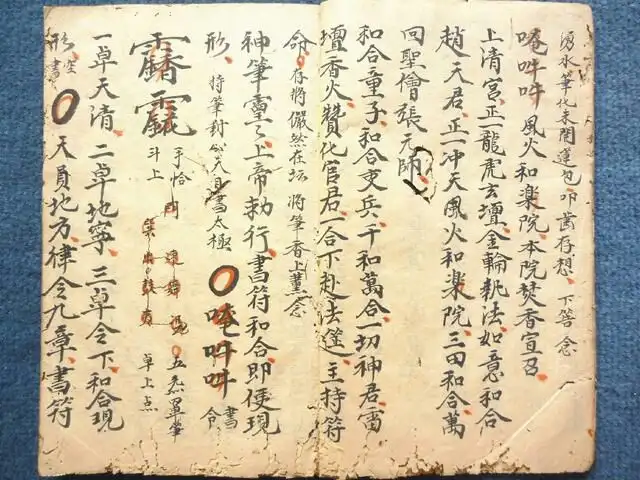 湧水筆化未開蓮包 叩齒存想 下筶念
唵吽吽 風火和樂院本院焚香宣召
上清宮正一龍虎玄壇金輪執法如意和合
趙天君正一冲天風火和樂院三田和合萬
回聖僧張元帥
和合童子和合吏兵千和萬合一切神君雷
壇香火贊化官君合下赴法筵主持符
命 存將儼然在坛 將筆香上薰念
神筆靈之上帝勅行書符和合即便現
形 將筆對 天目書太極 唵吽吽 書令
手恰
斗上 五炁罩筆 卓上点
一卓天清二卓地寧三卓令下和合現
形 空書 天員地方律令九章書符